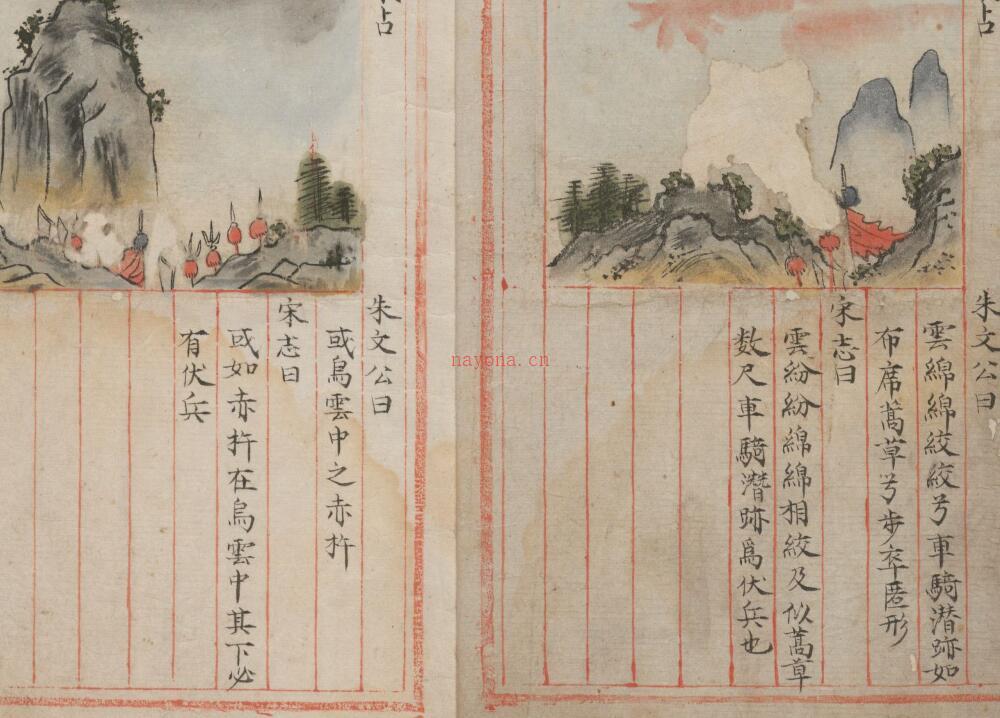 占
朱文公曰
雲綿綿絞絞兮車騎潛跡如
布席蒿草兮步卒匿形
宋志曰
雲紛紛綿綿相絞及似蒿草
数尺車騎潛跡爲伏兵也
占
朱文公曰
或烏雲中之赤杵
宋志曰
或如赤杵在烏雲中其下必
有伏兵
nayona.cn